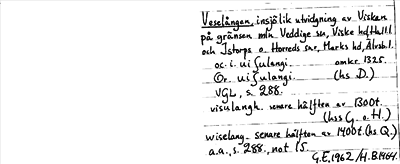 Veselången, insjölik utvidgning av Viskan
på gränsen mln Veddige sn, Viske hd, Hall. l.
och Istorps o. Horreds snr, Marks hd, Älvsb. l.
oc. i. uiſulangi. omkr. 1325.
Or. uiſulangi. (hs D.)
VGL, s. 288.
visulangh. senare hälften av 1300t.
(hss G. o. H.)
wiselang. senare hälften av 1400t. (hs Q.)
a.a., s. 288, not 15.
G.E. 1962 / H.B. 1964.